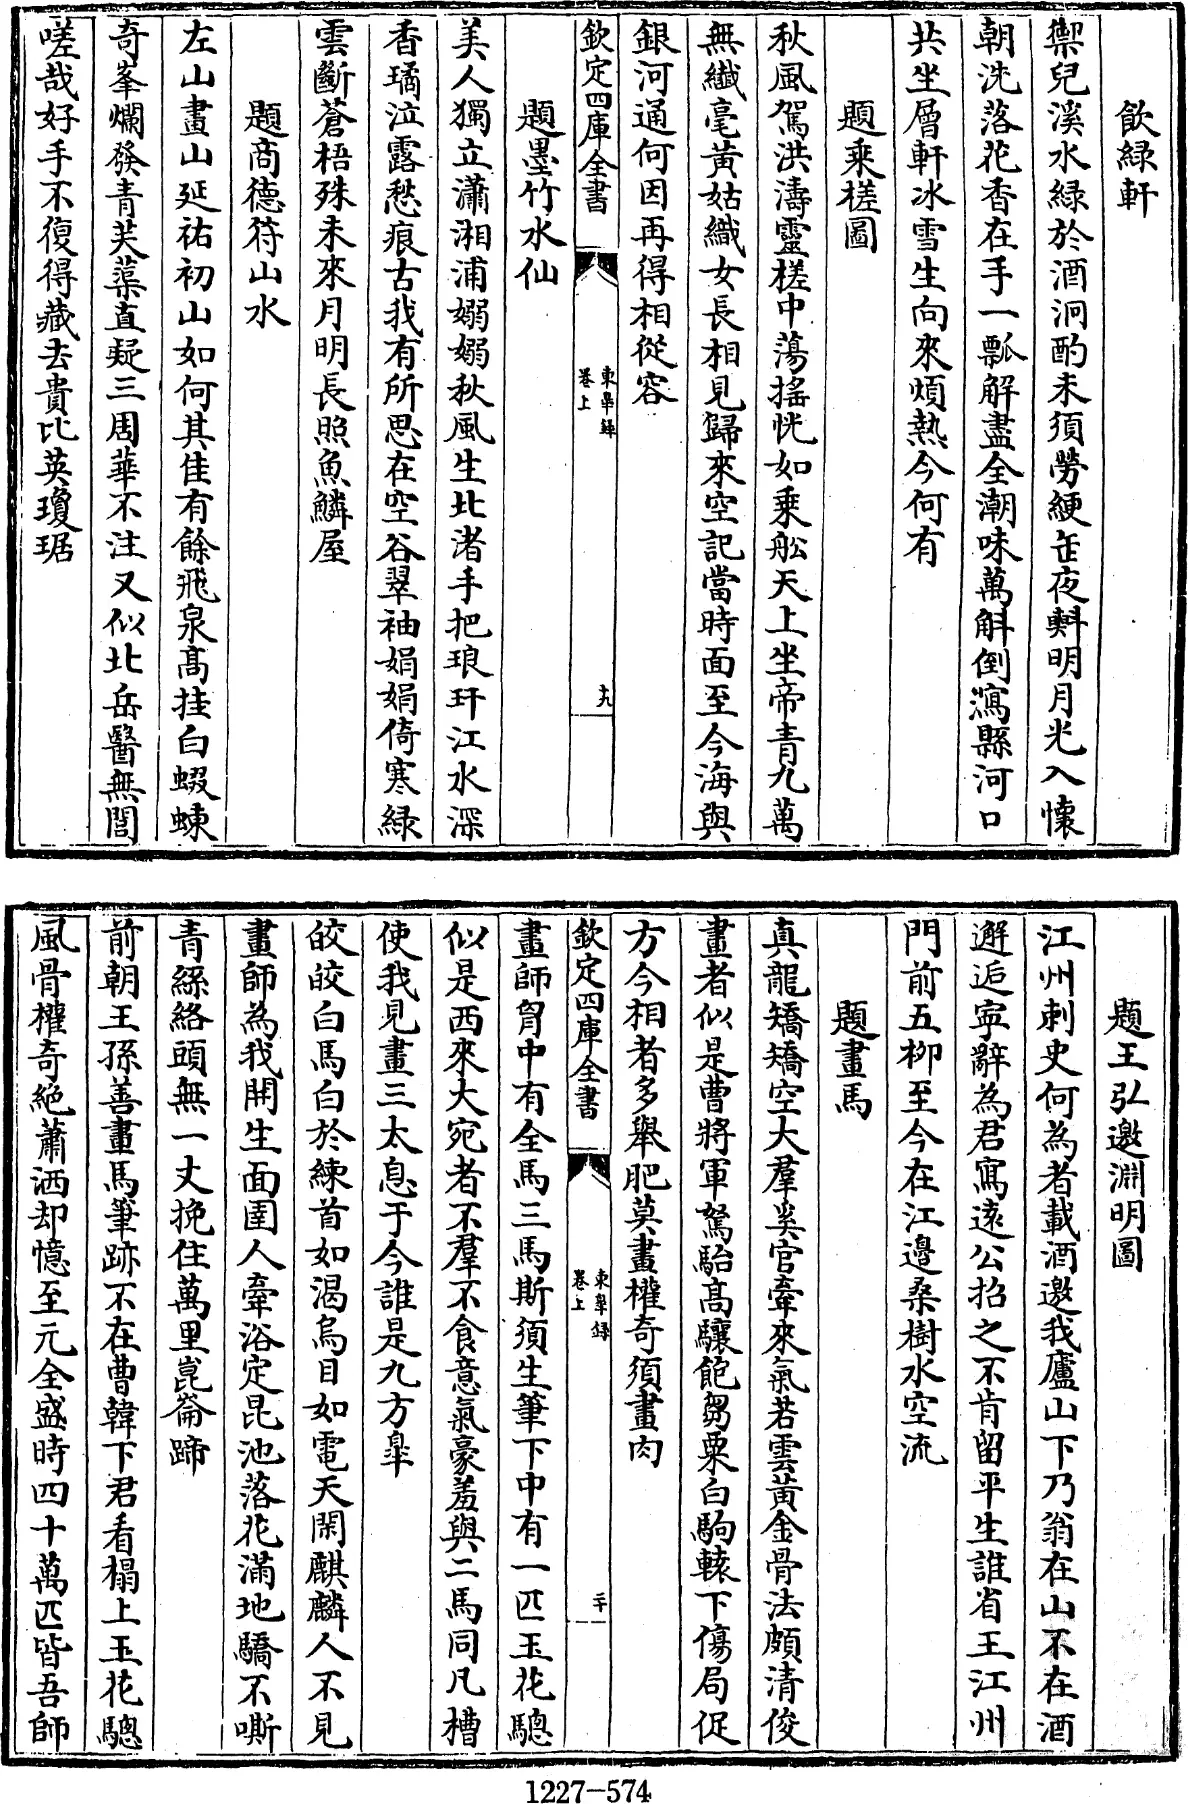 飲緑軒
禦兒溪水緑於酒泂酌未須勞綆缶夜㪺明月光入懐
朝洗落花香在手一瓢解盡全潮味萬斛倒瀉縣河口
共坐層軒冰雪生向來煩熱今何有
題乘槎圖
秋風駕洪濤靈槎中蕩搖恍如乘舩天上坐帝青九萬
無纖毫黄姑織女長相見歸來空記當時面至今海與
銀河通何因再得相從容
欽定四庫全書
東臯録
卷上
十九
題墨竹水仙
美人獨立瀟湘浦嫋嫋秋風生北渚手把琅玕江水深
香璚泣露愁痕古我有所思在空谷翠袖娟娟倚寒緑
雲斷蒼梧殊未來月明長照魚鱗屋
題商德符山水
左山畫山延祐初山如何其佳有餘飛泉髙挂白蝃蝀
奇峯爛發青芙蕖直疑三周華不注又似北岳醫無閭
嗟哉好手不復得藏去貴比英瓊琚
題王弘邀淵明圖
江州刺史何為者載酒邀我廬山下乃翁在山不在酒
邂逅寜辭為君寫逺公招之不肯留平生誰省王江州
門前五柳至今在江邉桑樹水空流
題畫馬
真龍矯矯空大羣奚官牽來氣若雲黄金骨法頗清俊
畫者似是曹將軍駑駘髙驤飽芻粟白駒轅下傷局促
方今相者多舉肥莫畫權奇須畫肉
欽定四庫全書
東臯録
卷上
二十
畫師胷中有全馬三馬斯須生筆下中有一匹玉花驄
似是西來大宛者不羣不食意氣豪羞與二馬同凡槽
使我見畫三太息于今誰是九方臯
皎皎白馬白於練首如渴烏目如電天閑麒麟人不見
畫師為我開生面圉人牽浴定昆池落花滿地驕不嘶
青絲絡頭無一丈挽住萬里崑崙蹄
前朝王孫善畫馬筆跡不在曹韓下君看榻上玉花驄
風骨權奇絶蕭洒却憶至元全盛時四十萬匹皆吾師
1227-574